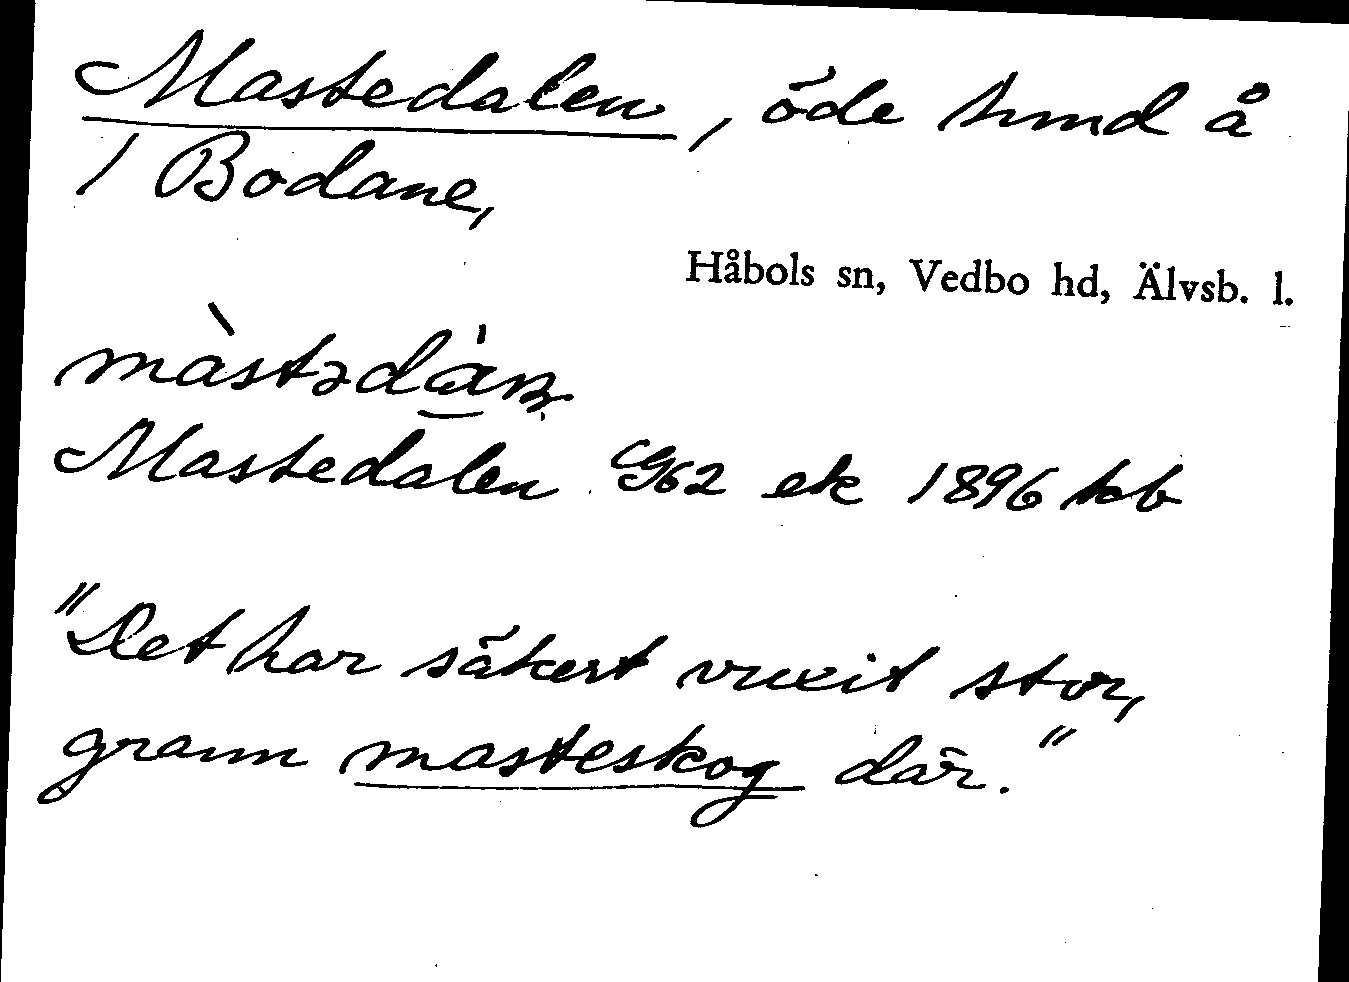 Mastedalen, öde hmd å
1 Bodane,
Håbols sn, Vedbo hd, Älvsb. l.
màstədàn
Mastedalen G62 ek 1896 kb
"Det har säkert vuxit stor,
grann masteskog där."